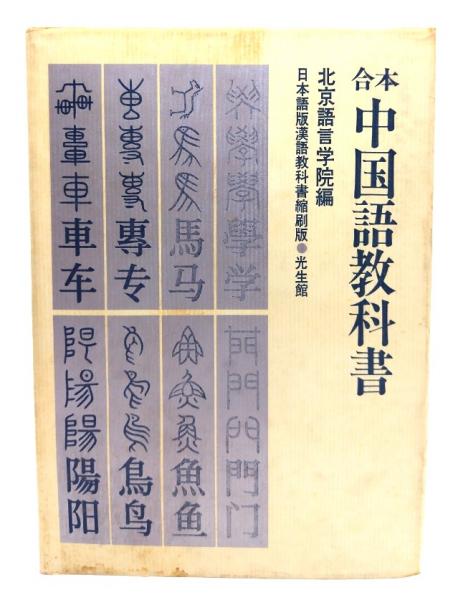 合本
中国語教科書
北京語言学院編
日本語版漢語教科書縮刷版●光生館
學学
馬马
專专
車車车
門门
魚鱼
鳥鸟
陽阳